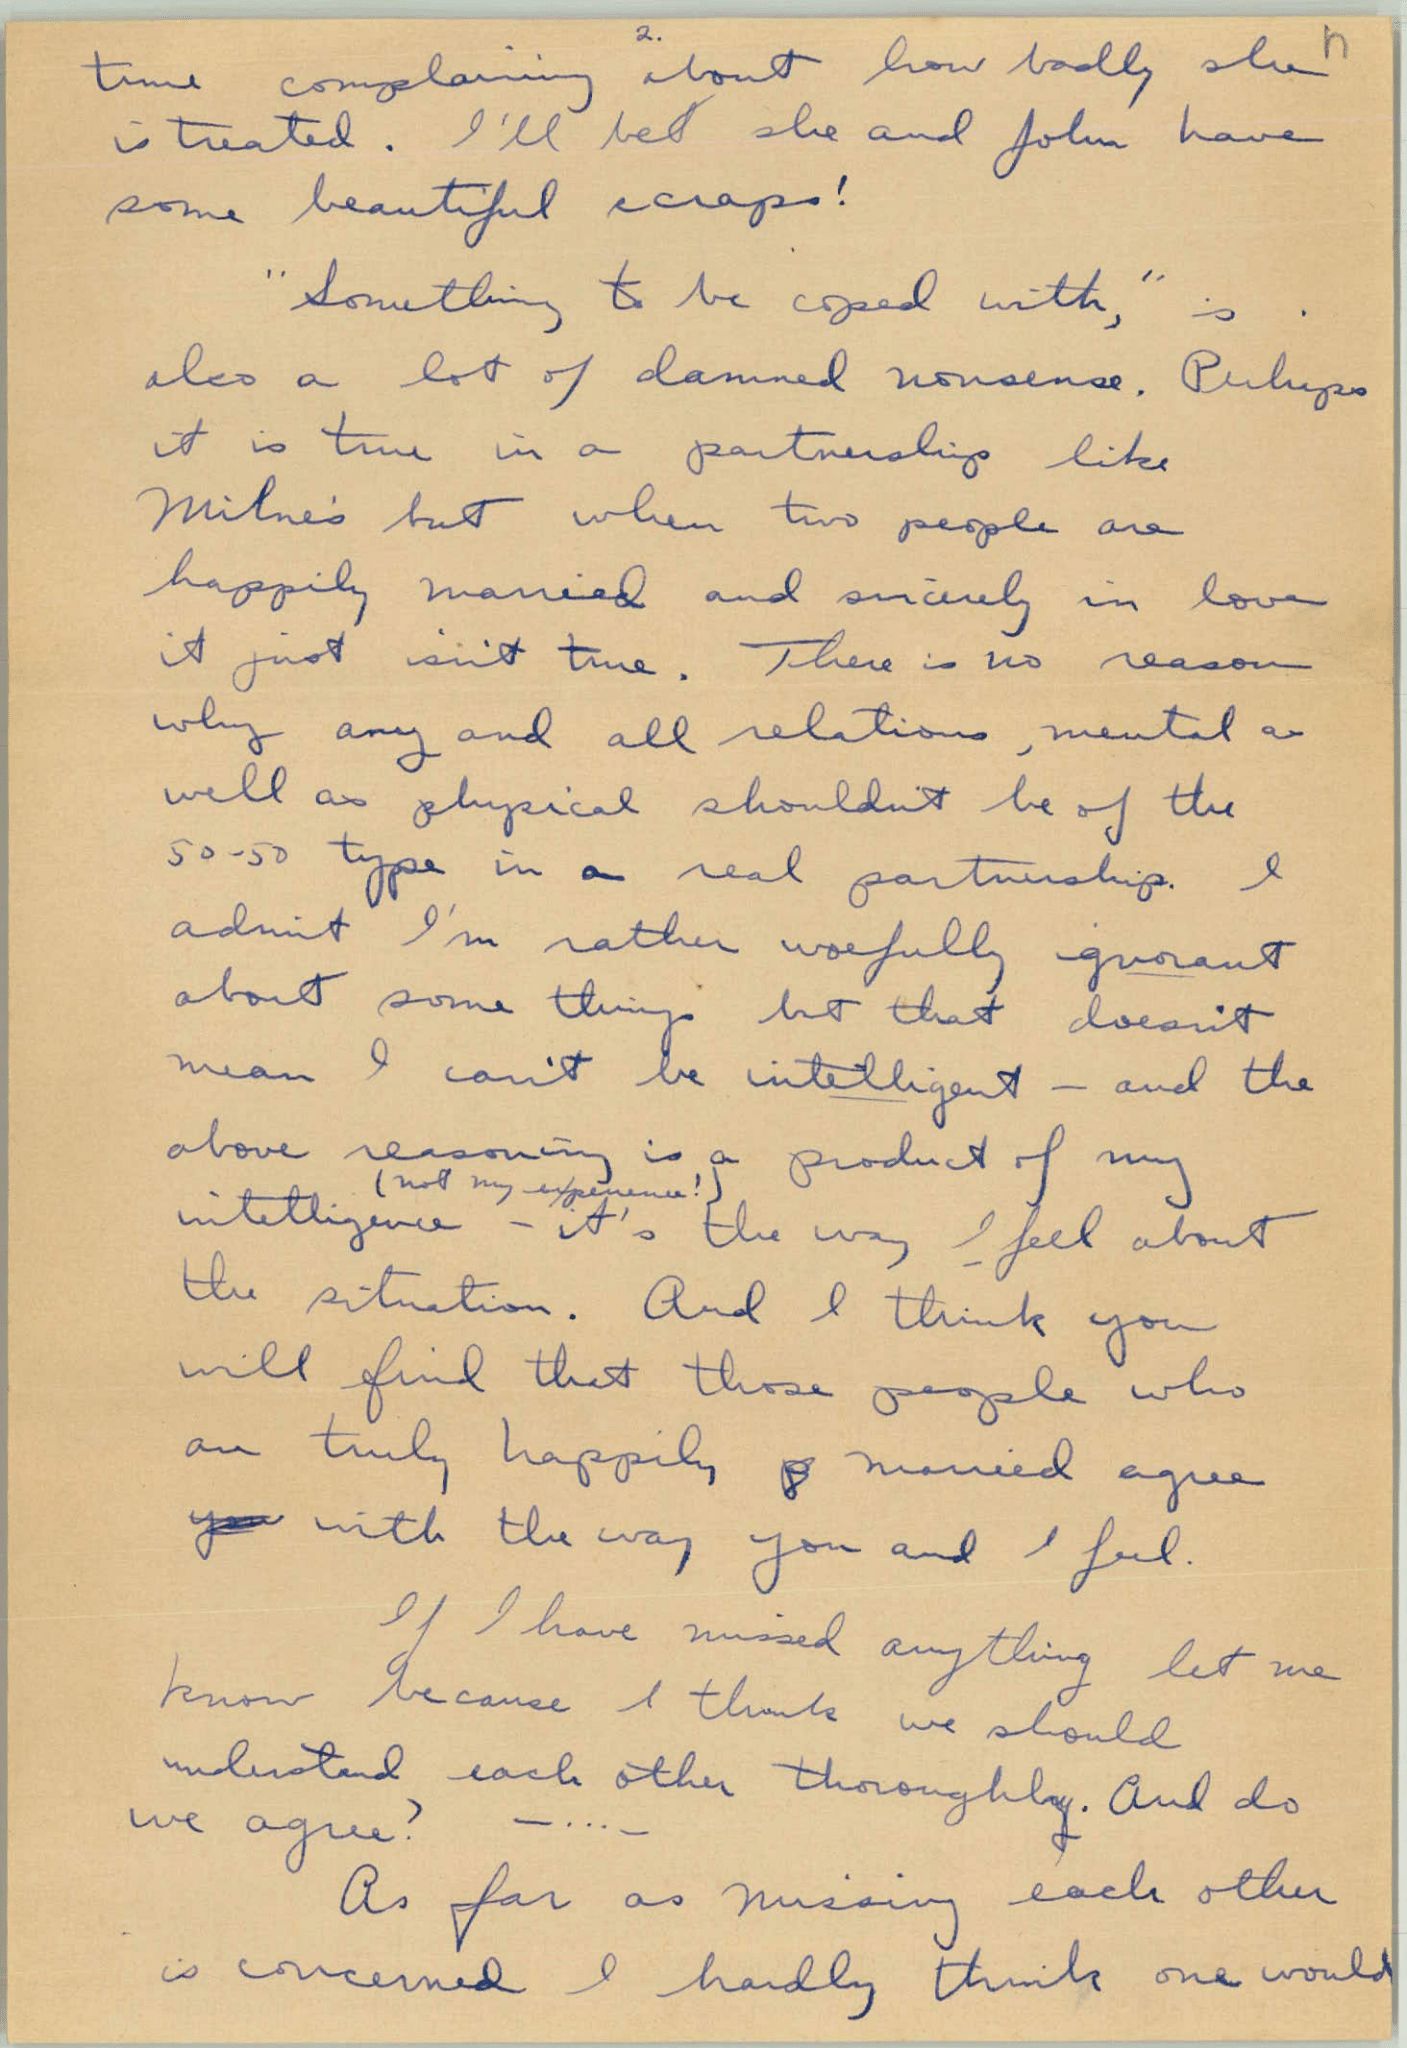 2.
n
time complaining about how badly she
is treated. I'll bet she and John have
some beautiful scraps!
"Something to be coped with," is
also a lot of damned nonsense. Perhaps
it is true in a partnership like
Milne's but when two people are
happily married and sincerely in love
it just isn't true. There is no reason
why any and all relations, mental as
well as physical shouldn't be of the
50-50 type in a real partnership. I
admit I'm rather woefully ignorant
about some things but that doesn't
mean I can't be intelligent - and the
above reasoning is a product of my
(not my experience!)
intelligence - it's the way I feel about
the situation. And I think you
will find that those people who
are truly happily married agree
you with the way you and I feel.
If I have missed anything let me
know because I think we should
understand each other thoroughly. And do
we agree? -...-
As far as missing each other
is concerned I hardly think one would